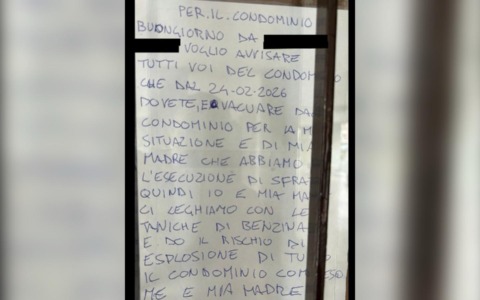 PER.IL.CONDOMINIO
BUONGIORNO DA
VOGLIO AVVISARE
TUTTI VOI DEL CONDOMINIO
CHE DAL 24-02-2026
DOVETE, EVAQUARE DA
CONDOMINIO PER LA M
SITUAZIONE E DI MIA
MADRE CHE ABBIAMO
L'ESECUZIONE DI SFRA
QUINDI IO E MIA MA
CI LEGHIAMO CON LE
TANICHE DI BENZINA
E DO IL RISCHIO DI
ESPLOSIONE DI TU
IL CONDOMINIO COM ESO
ME E MIA MADRE